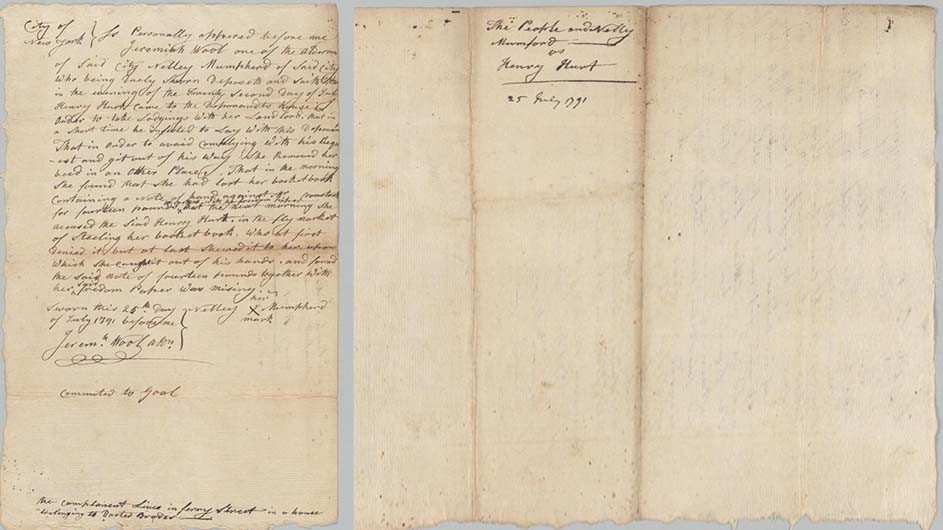 City of
New York } Ss Personally appeared before me
Jeremiah Wool one of the Alderm
of Said City Nelley Mumpherd of Said City
Who being Duely Sworn Deposeth and saith that
in the evening of the Twenty Second Day of July
Henry Hurt came to the Deponants house in
Order to take Lodgings with her Land lord, that in
a Short time he Insisted to Lay with this Deponan
That in order to avoid Complying with his Requ
-est and git out of his Way She Removed her
beed in an Other Place, That in the morning
She found that She had lost her bocketbook
Containing a Note of hand against
for fourteen pounds that the next morning She
accused the Said Henry Hurt, in the fly market
of Steeling her bocket book. Who at first
denied it but at last Shewed it to her, upon
Which She caught it out of his hands, and found
the Said note of fourteen pounds together With
her fredom Paper Was missing.
Sworn this 25th day
of July 1791 before me
Jeremh. Wool aldn.
Nelley X Mumpherd
her
mark
Commited to Goal
the Complanent Lives in ferry Street in a house
belonging to
The People and Nelly
Mumford
vs
Henry Hurt
25 July 1791